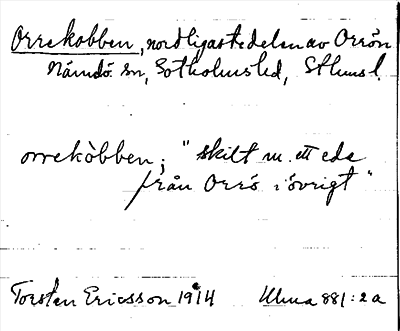 Orrekobben, nordligaste delen av Orrön
Nämdö sn, Sotholms hd, Sthms l.
orrekòbben; "skilt m. ett ede
från Orrö i övrigt"
Torsten Ericsson 1914 Ulma 881:2a